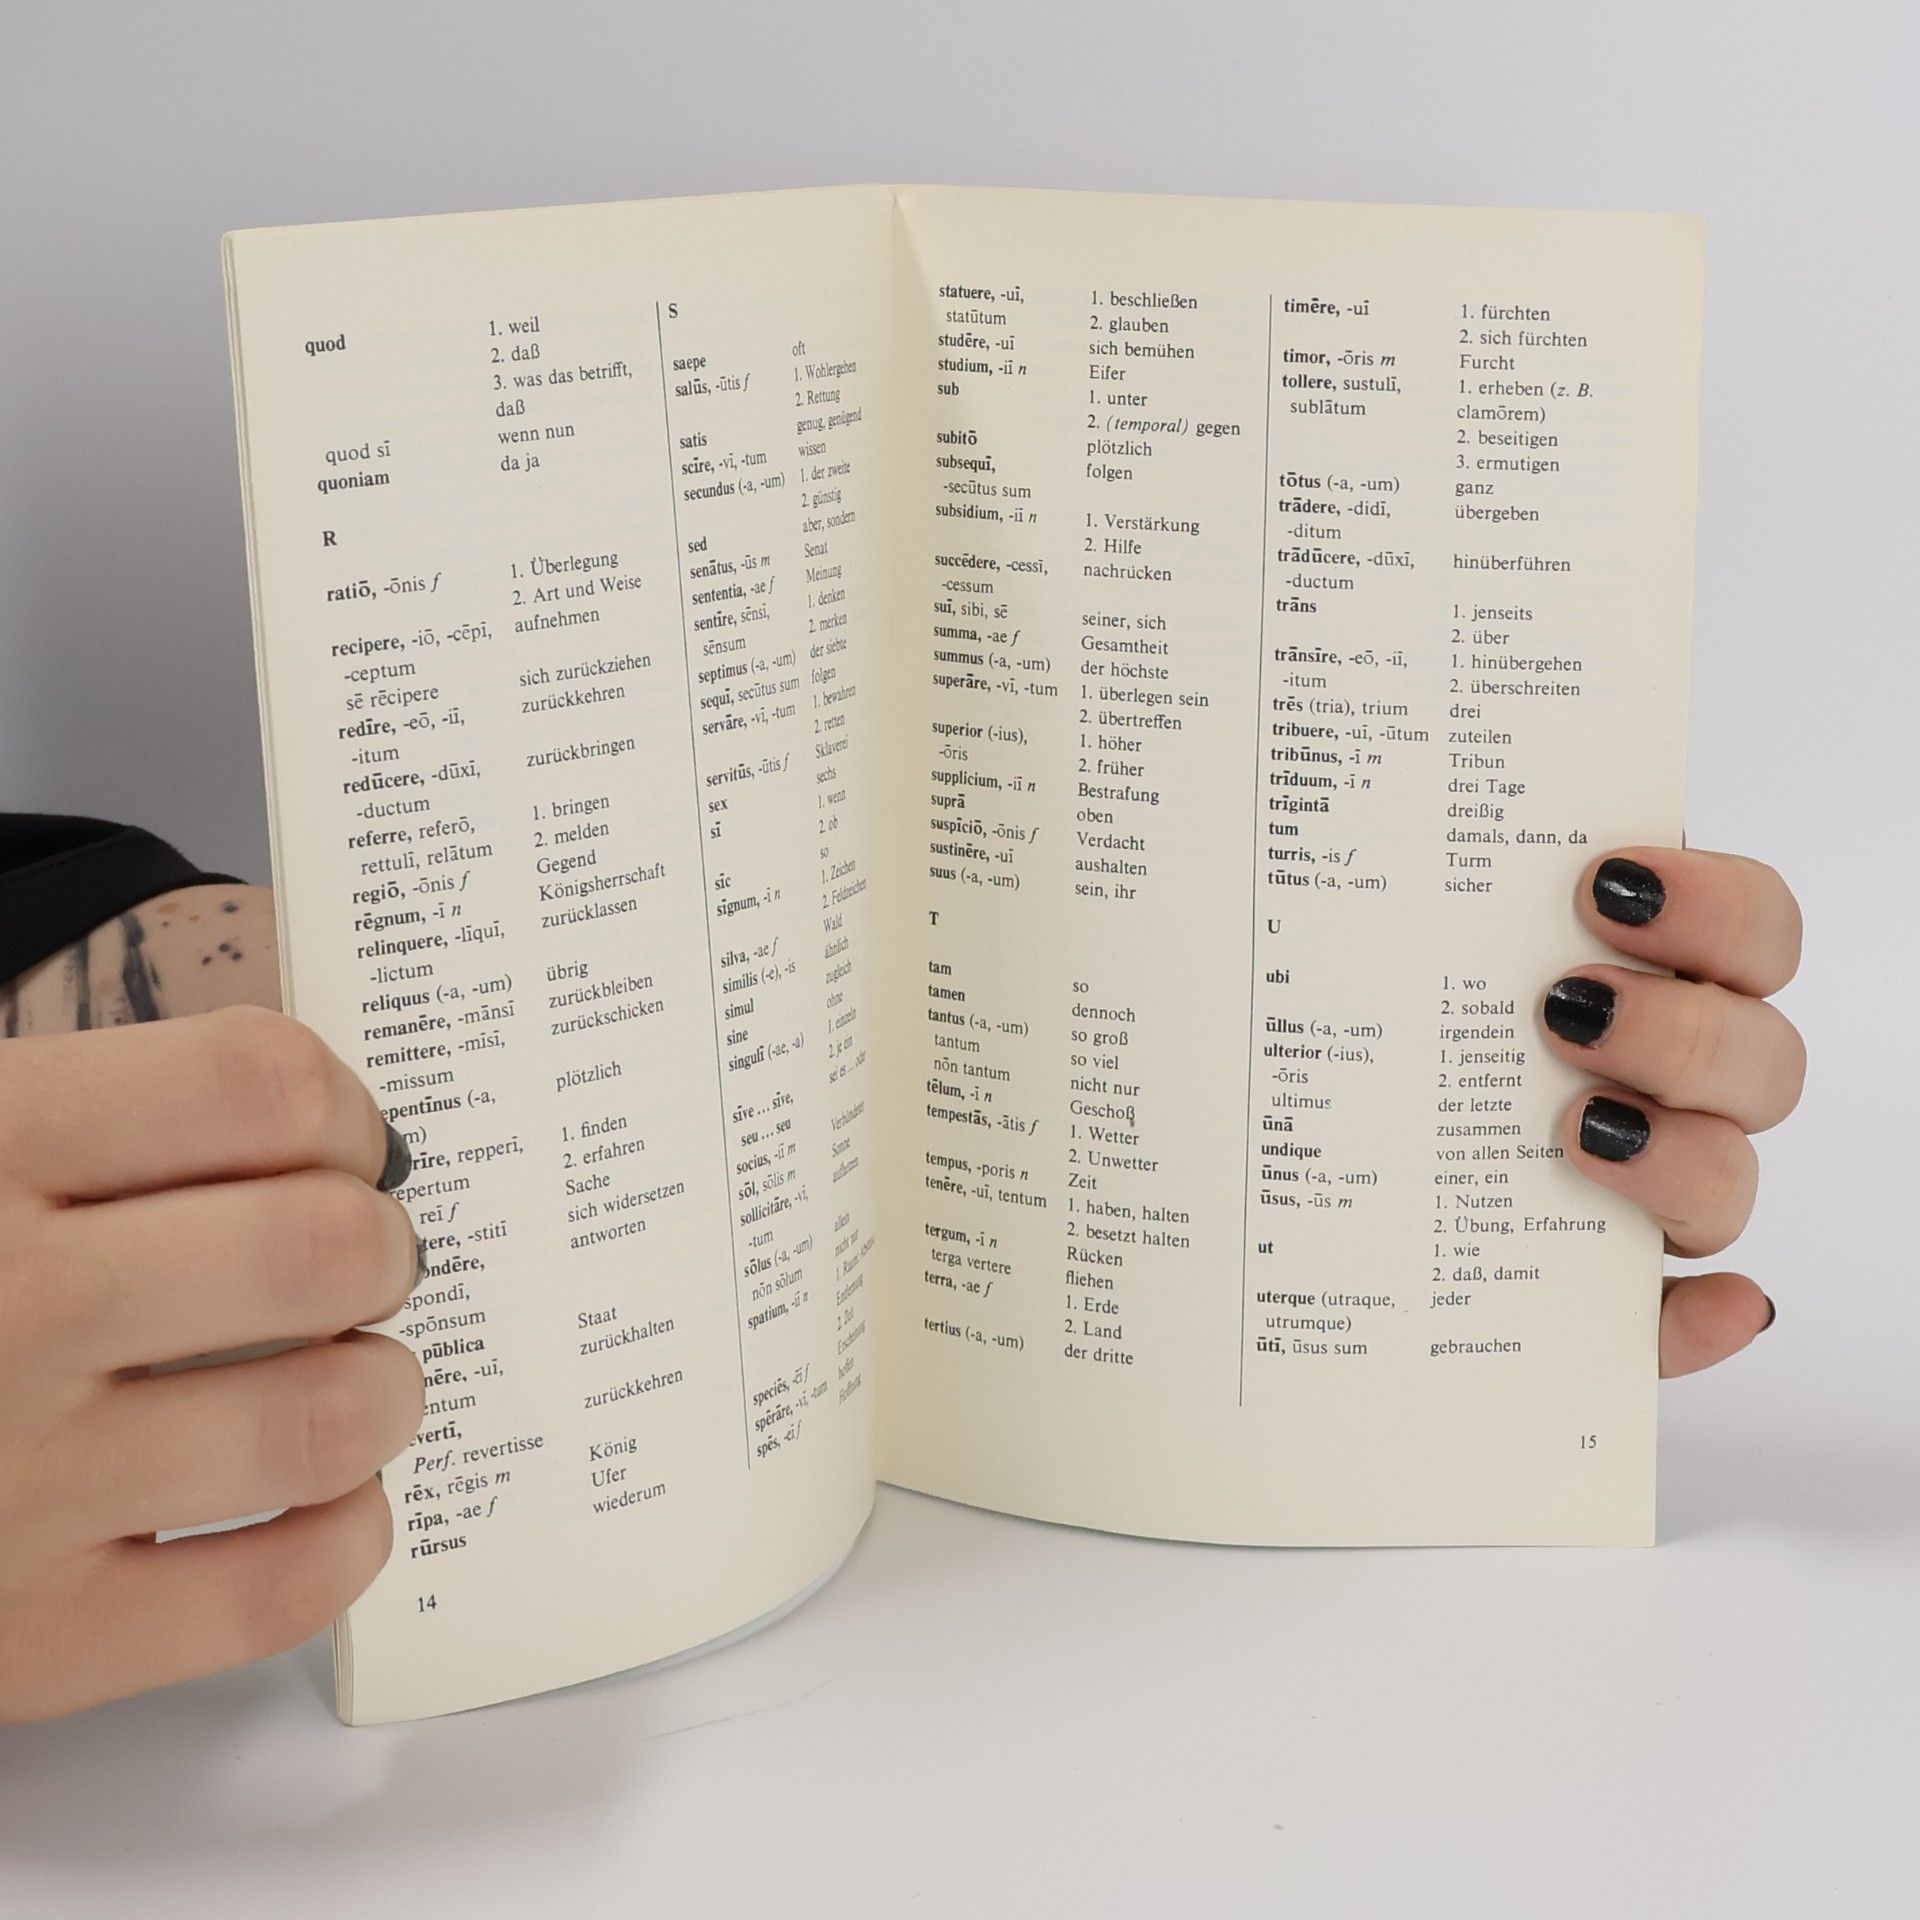 quod 1. weil
2. daß
3. was das betrifft,
daß
quod sī wenn nun
quoniam da ja
R
ratiō, -ōnis f 1. Überlegung
2. Art und Weise
recipere, -iō, -cēpī, aufnehmen
-ceptum
sē rēcipere sich zurückziehen
redīre, -eō, -iī, zurückkehren
-itum
redūcere, -dūxī, zurückbringen
-ductum
referre, referō, 1. bringen
rettulī, relātum 2. melden
regiō, -ōnis f Gegend
rēgnum, -ī n Königsherrschaft
relinquere, -līquī, zurücklassen
-lictum
reliquus (-a, -um) übrig
remanēre, -mānsī zurückbleiben
remittere, -mīsī, zurückschicken
-missum
epentīnus (-a, plötzlich
m)
rīre, repperī, 1. finden
epertum 2. erfahren
reī f Sache
tere, -stitī sich widersetzen
ondēre, antworten
spondī,
-spōnsum
pūblica Staat
nēre, -uī, zurückhalten
entum
vertī, zurückkehren
Perf. revertisse
rēx, rēgis m König
rīpa, -ae f Ufer
rūrsus wiederum
14
S
saepe oft
salūs, -ūtis f 1. Wohlergehen
2. Rettung
satis genug, genügend
scīre, -vī, -tum wissen
secundus (-a, -um) 1. der zweite
2. günstig
sed aber, sondern
senātus, -ūs m Senat
sententia, -ae f Meinung
sentīre, sēnsī, 1. denken
sēnsum 2. merken
septimus (-a, -um) der siebte
sequī, secūtus sum folgen
servāre, -vī, -tum 1. bewahren
2. retten
servitūs, -ūtis f Sklaverei
sex sechs
sī 1. wenn
2. ob
sīc so
sīgnum, -ī n 1. Zeichen
2. Feldzeichen
silva, -ae f Wald
similis (-e), -is ähnlich
simul zugleich
sine ohne
singulī (-ae, -a) 1. einzeln
2. je ein
sīve ... sīve, sei es ... oder
seu ... seu
socius, -iī m Verbündeter
sōl, sōlis m Sonne
sollicitāre, -vī, aufhetzen
-tum
sōlus (-a, -um) allein
nōn sōlum nicht nur
spatium, -iī n 1. Raum,
Entfernung
2. Ziel
speciēs, -ēī f Erscheinung
spērāre, -vī, -tum hoffen
spēs, -eī f Hoffnung
statuere, -uī, 1. beschließen
statūtum 2. glauben
studēre, -uī sich bemühen
studium, -iī n Eifer
sub 1. unter
2. (temporal) gegen
subitō plötzlich
subsequī, folgen
-secūtus sum
subsidium, -iī n 1. Verstärkung
2. Hilfe
succēdere, -cessī, nachrücken
-cessum
suī, sibi, sē seiner, sich
summa, -ae f Gesamtheit
summus (-a, -um) der höchste
superāre, -vī, -tum 1. überlegen sein
2. übertreffen
superior (-ius), 1. höher
-ōris 2. früher
supplicium, -iī n Bestrafung
suprā oben
suspīciō, -ōnis f Verdacht
sustinēre, -uī aushalten
suus (-a, -um) sein, ihr
T
tam so
tamen dennoch
tantus (-a, -um) so groß
tantum so viel
nōn tantum nicht nur
tēlum, -ī n Geschoß
tempestās, -ātis f 1. Wetter
2. Unwetter
tempus, -poris n Zeit
tenēre, -uī, tentum 1. haben, halten
2. besetzt halten
tergum, -ī n Rücken
terga vertere fliehen
terra, -ae f 1. Erde
2. Land
tertius (-a, -um) der dritte
timēre, -uī 1. fürchten
2. sich fürchten
timor, -ōris m Furcht
tollere, sustulī, 1. erheben (z. B.
sublātum clamōrem)
2. beseitigen
3. ermutigen
tōtus (-a, -um) ganz
trādere, -didī, übergeben
-ditum
trādūcere, -dūxī, hinüberführen
-ductum
trāns 1. jenseits
2. über
trānsīre, -eō, -iī, 1. hinübergehen
-itum 2. überschreiten
trēs (tria), trium drei
tribuere, -uī, -ūtum zuteilen
tribūnus, -ī m Tribun
trīduum, -ī n drei Tage
trīgintā dreißig
tum damals, dann, da
turris, -is f Turm
tūtus (-a, -um) sicher
U
ubi 1. wo
2. sobald
ūllus (-a, -um) irgendein
ulterior (-ius), 1. jenseitig
-ōris 2. entfernt
ultimus der letzte
ūnā zusammen
undique von allen Seiten
ūnus (-a, -um) einer, ein
ūsus, -ūs m 1. Nutzen
2. Übung, Erfahrung
ut 1. wie
2. daß, damit
uterque (utraque, jeder
utrumque)
ūtī, ūsus sum gebrauchen
15